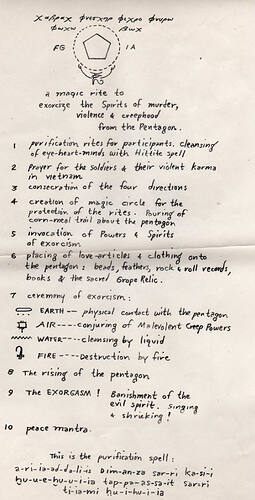 Χαβραχ Φνεσχηρ Φιχρο Φνυρω
Φωχω Βωχ
FG IA
a magic rite to
exorcize the Spirits of murder,
violence & creephood
from the Pentagon.
1 purification rites for participants. cleansing
of eye-heart-minds with Hittite spell
2 Prayer for the soldiers & their violent karma
in vietnam
3 consecration of the four directions
4 creation of magic circle for the
protection of the rites. Pouring of
corn-meal trail about the pentagon
5 invocation of Powers & Spirits
of exorcism
6 placing of love-articles & clothing onto
the pentagon: beads, feathers, rock & roll records,
books & the sacred Grope Relic.
7 ceremony of exorcism:
EARTH -- physical contact with the pentagon
AIR---- conjuring of Malevolent Creep Powers
WATER---- cleansing by liquid
FIRE ----Destruction by fire
8 The rising of the pentagon
9 The EXORGASM! Banishment of the
evil spirit. Singing
& shrieking!
10 peace mantra.
This is the purification spell:
a-ri-ia-ad-da-li-is Dim-an-za sar-ri ka-si-i
hu-u-e-hu-u-i-ia tap-pa-as-sa-it sar-ri
ti-ia-mi hu-i-hu-i-ia